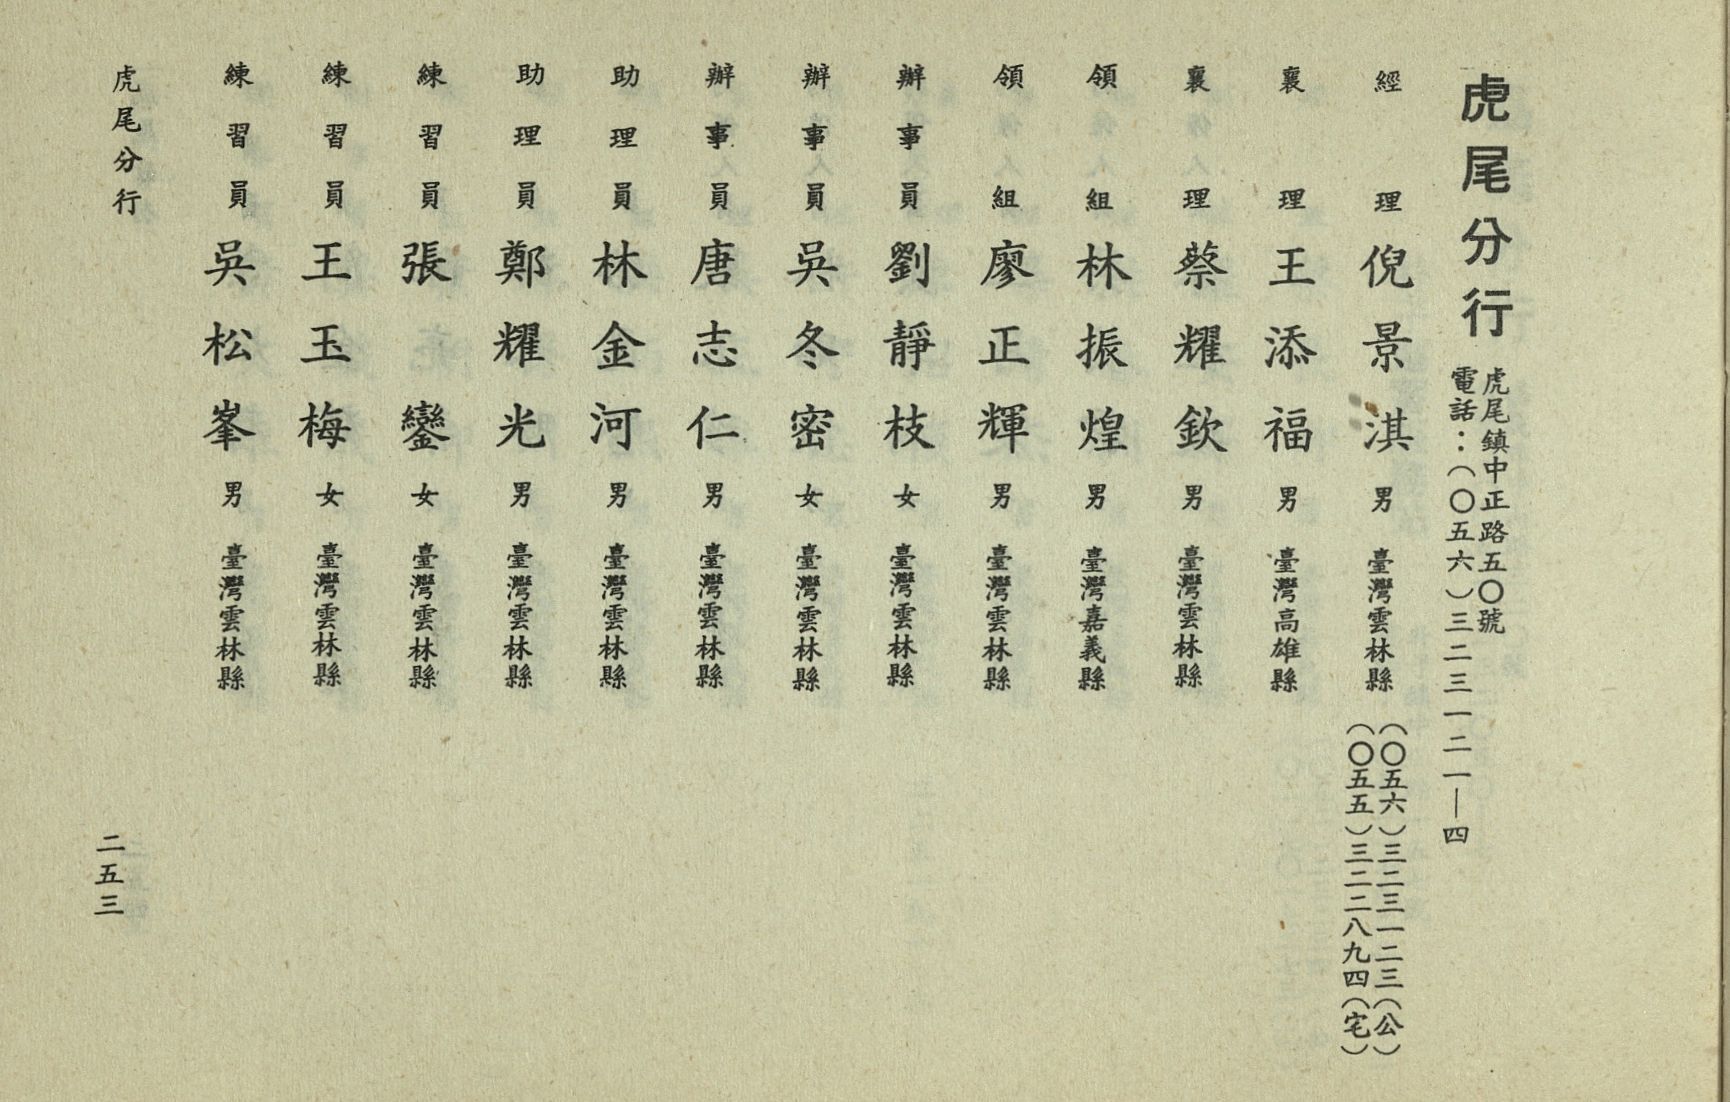 虎尾分行
虎尾鎮中正路五〇號
電話：(〇五六)三二三一二一—四
經理 倪景淇 男 臺灣雲林縣 (〇五六)三二三一二三(公)
(〇五五)三二二八九四(宅)
襄理 王添福 男 臺灣高雄縣
襄理 蔡耀欽 男 臺灣雲林縣
領組 林振煌 男 臺灣嘉義縣
領組 廖正輝 男 臺灣雲林縣
辦事員 劉靜枝 女 臺灣雲林縣
辦事員 吳冬密 女 臺灣雲林縣
辦事員 唐志仁 男 臺灣雲林縣
助理員 林金河 男 臺灣雲林縣
助理員 鄭耀光 男 臺灣雲林縣
練習員 張鑾 女 臺灣雲林縣
練習員 王玉梅 女 臺灣雲林縣
練習員 吳松峯 男 臺灣雲林縣
虎尾分行
二五三